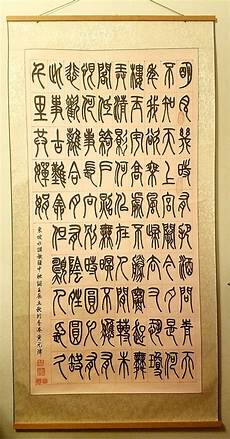 明月幾時有把酒問青天
不知天上宮闕今夕是何
年我欲乘風歸去又恐瓊
樓玉宇高處不勝寒起舞
弄清影何似在人間轉朱
閣低綺戶照無眠不應有
恨何事長向別時圓人有
悲歡離合月有陰晴圓缺
此事古難全但願人長久
千里共嬋娟
東坡水調歌頭中秋詞